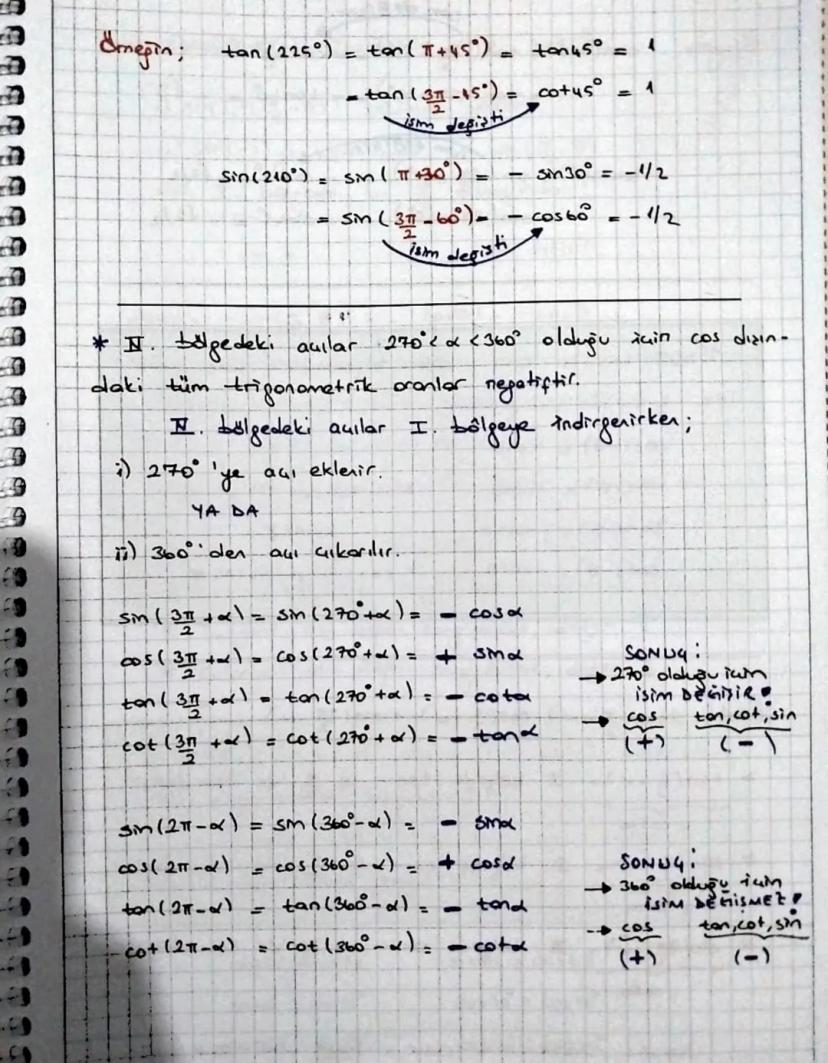 Örneğin; tan(225°) = tan(π+45°) = tan45° = 1
= tan(3π/2 -45°) = cot45° = 1
isim değişti
sin(210°) = sin(π+30°) = - sin30° = -1/2
= sin(3π/2 -60°) = - cos60° = -1/2
isim değişti
* IV. bölgedeki açılar 270°<α<360° olduğu için cos dışın-
daki tüm trigonometrik oranlar negatiftir.
IV. bölgedeki açılar I. bölgeye indirgenirken;
i) 270° 'ye açı eklenir.
YA DA
ii) 360°'den açı çıkarılır.
sin(3π/2 +α) = sin(270°+α) = - cosα
cos(3π/2 +α) = cos(270°+α) = + sinα
tan(3π/2 +α) = tan(270°+α) = - cotα
cot(3π/2 +α) = cot(270°+α) = - tanα
SONUÇ:
→ 270° olduğu için
İSİM DEĞİŞİR!
→ cos tan,cot,sin
(+) (-)
sin(2π-α) = sin(360°-α) = - sinα
cos(2π-α) = cos(360°-α) = + cosα
tan(2π-α) = tan(360°-α) = - tanα
cot(2π-α) = cot(360°-α) = - cotα
SONUÇ:
→ 360° olduğu için
İSİM DEĞİŞMEZ!
→ cos tan,cot,sin
(+) (-)